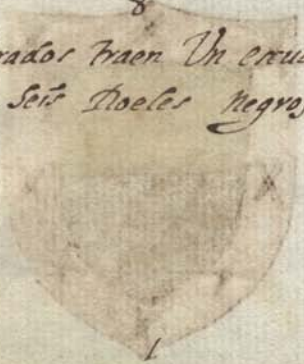 8
rados traen Un escu
Seis Roeles negros
1